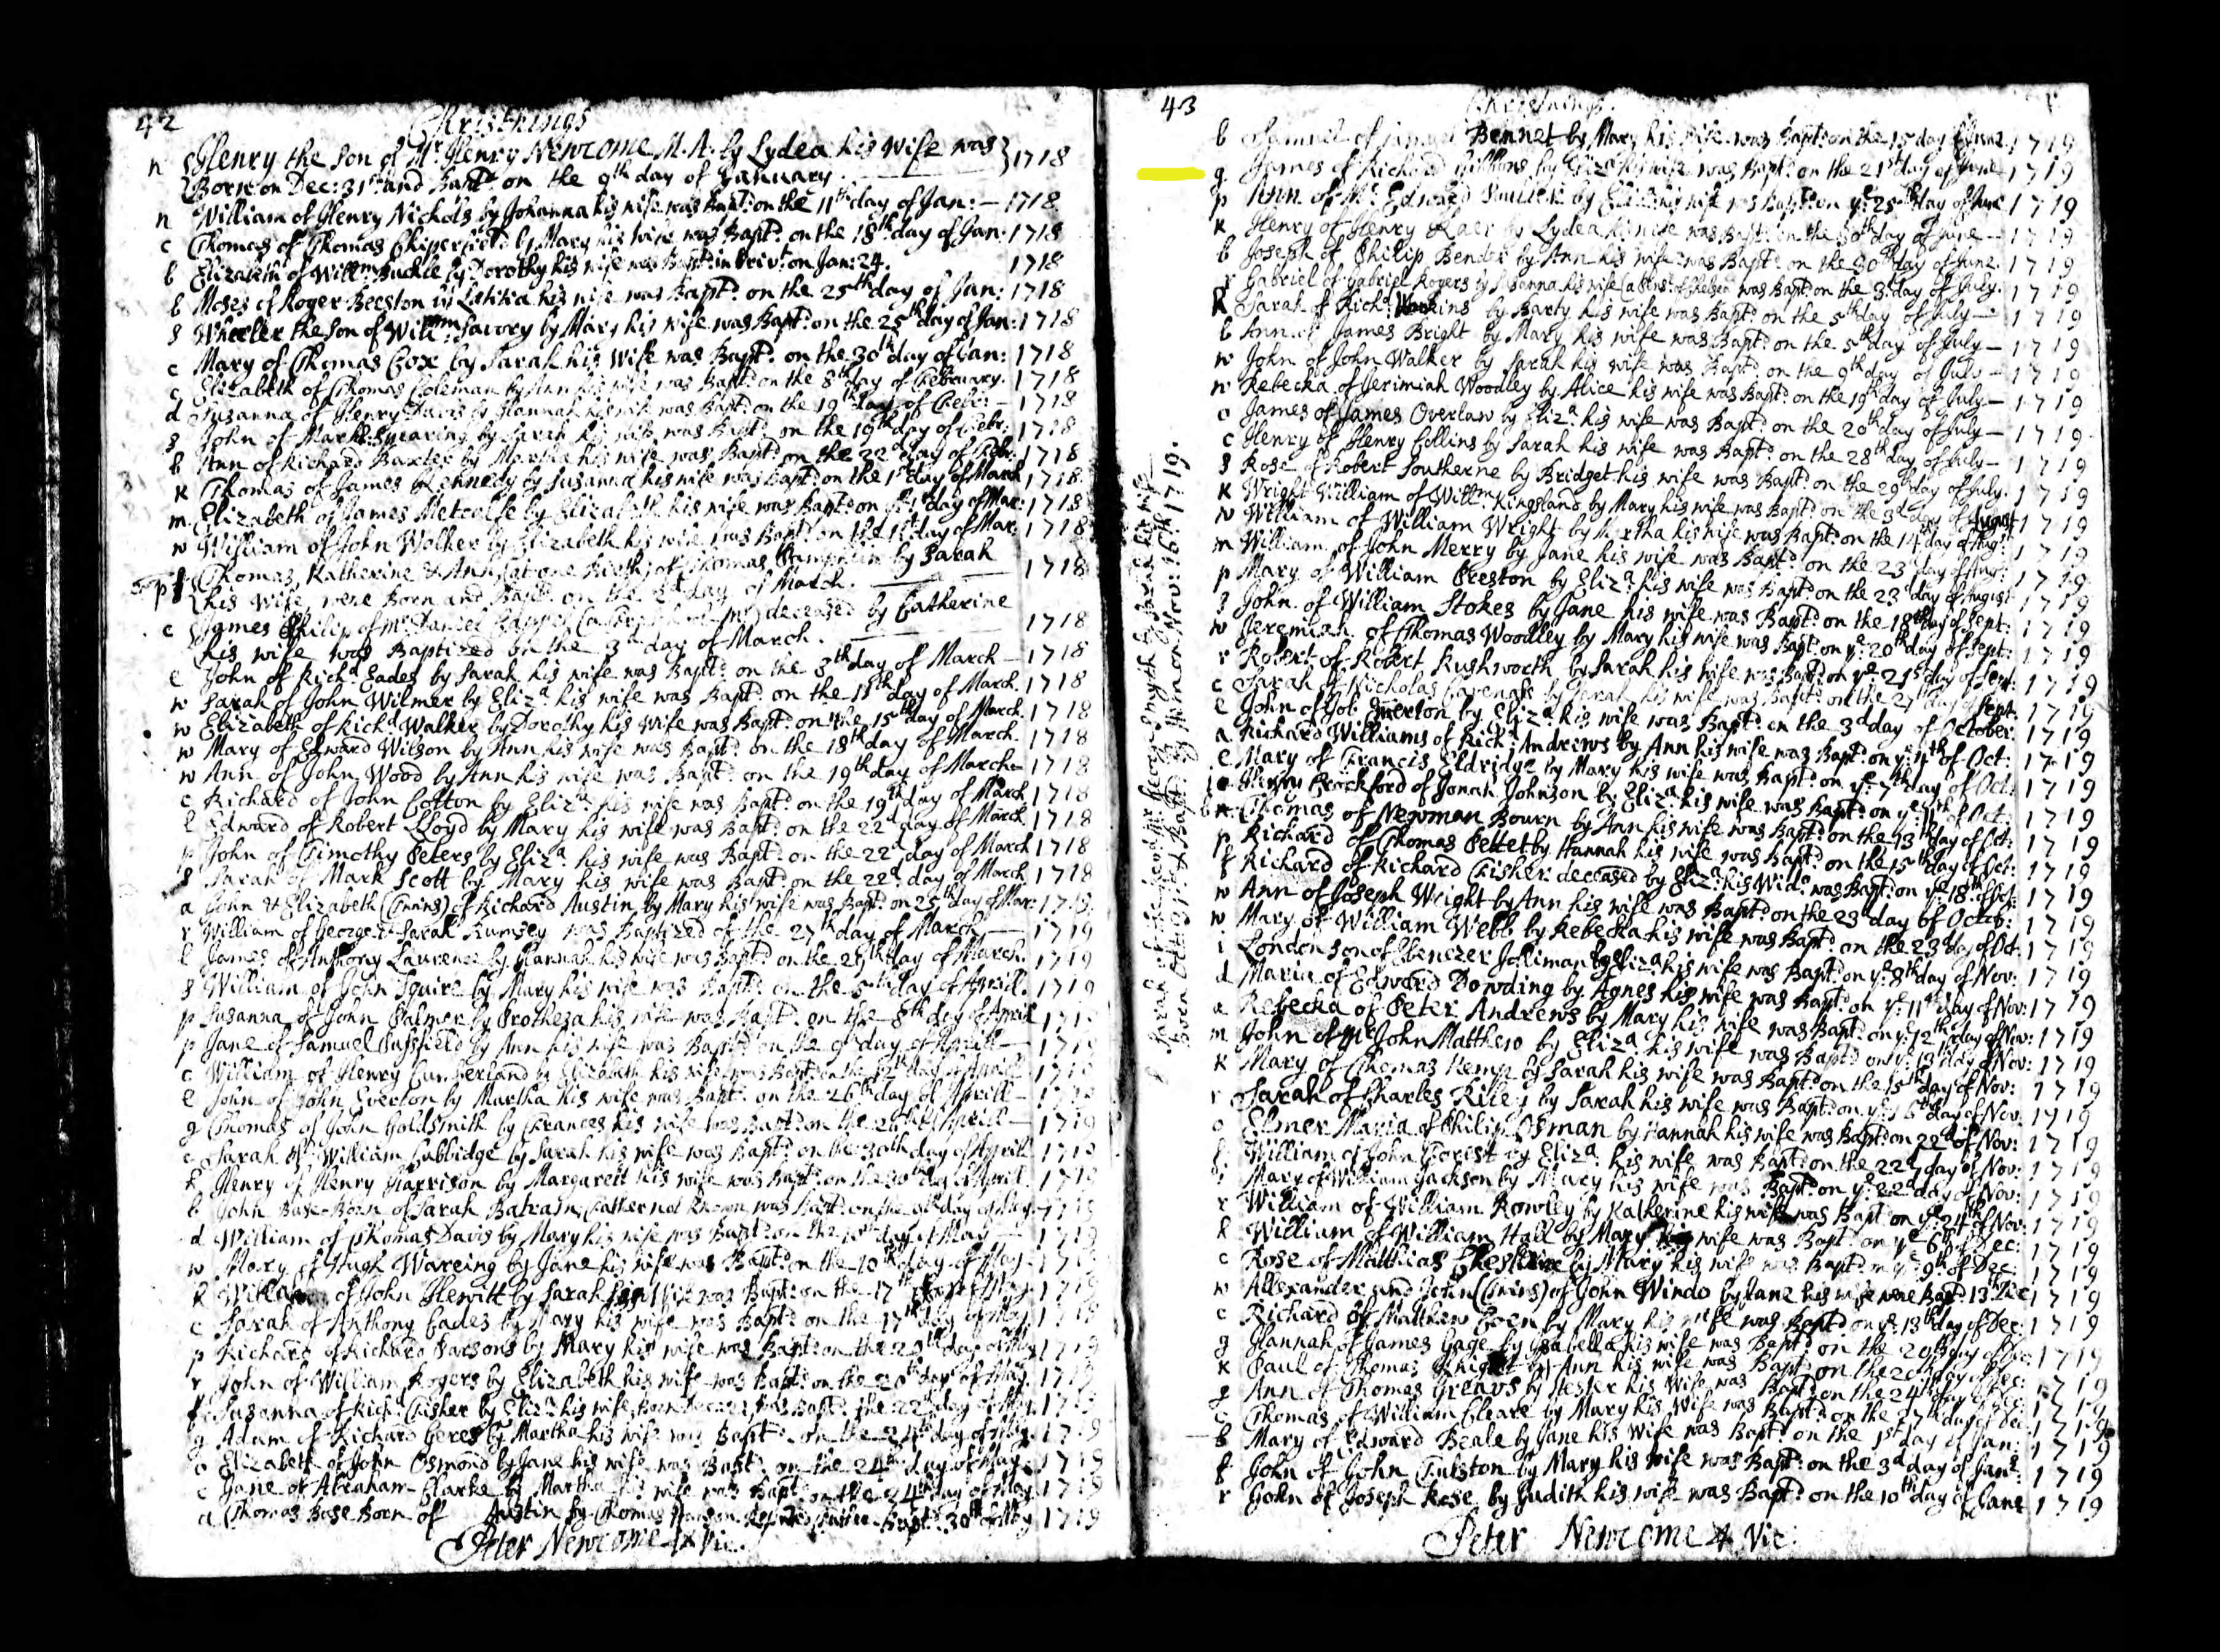 42
Christnings
n Henry the Son of Mr Henry Newcome M. A. by Lydea his Wife was } 1718
Born on Dec: 31st and Bapt: on the 9th day of January.
n William of Henry Nichols by Johanna his wife was Bapt: on the 11th day of Jan: — 1718
c Thomas of Thomas Chiperfield by Mary his wife was Bapt: on the 18th day of Jan: 1718
b Elizabeth of Willm Buckle by Dorothy his wife was Bapt: in Privt: on Jan: 24. 1718
b Moses of Roger Beeston by Letitia his wife was Bapt: on the 25th day of Jan: 1718
s Wheeler the Son of Willm Savory by Mary his wife was Bapt: on the 25th day of Jan: 1718
c Mary of Thomas Cox by Sarah his Wife was Bapt: on the 30th day of Jan: 1718
c Elizabeth of Thomas Coleman by Ann his wife was Bapt: on the 8th day of February. 1718
d Suzanna of Henry Davis by Hannah his wife was Bapt: on the 19th day of Febr: — 1718
s John of Mark Swearing by Sarah his wife was Bapt: on the 19th day of Febr: 1718
b Ann of Richard Baxter by Martha his wife was Bapt: on the 22d day of Febr: 1718
k Thomas of James Kennedy by Suzanna his wife was Bapt: on the 1st day of March 1718
m Elizabeth of James Metcalfe by Elizabeth his wife was Bapt: on ye 1st day of Mar: 1718
w William of John Walker by Elizabeth his wife was Bapt: on the 1st day of Mar: 1718
Thomas, Katherine & Ann (at one Birth) of Thomas by Sarah 1718
his Wife, were Born and Bapt: on the 2d day of March.
c James Philip of Mr Daniel deceased by Catherine
his wife was Baptized on the 3d day of March. 1718
e John of Richd Eades by Sarah his wife was Bapt: on the 3th day of March — 1718
w Sarah of John Wilmer by Eliza his wife was Bapt: on the 11th day of March. 1718
w Elizabeth of Richd Walker by Dorothy his Wife was Bapt: on the 15th day of March. 1718
w Mary of Edward Wilson by Ann his wife was Bapt: on the 18th day of March. 1718
w Ann of John Wood by Ann his wife was Bapt: on the 19th day of March 1718
c Richard of John Cotton by Eliza his wife was Bapt: on the 19th day of March 1718
l Edward of Robert Lloyd by Mary his wife was Bapt: on the 22d day of March 1718
p John of Timothy Peters by Eliza his wife was Bapt: on the 22d day of March 1718
s Sarah of Mark Scott by Mary his wife was Bapt: on the 22d day of March 1718
a John & Elizabeth (Twins) of Richard Austin by Mary his wife was Bapt: on 25th day of Mar: 1719
r William of George & Sarah Rumsey was Baptized of the 27th day of March — 1719
l James of Anthony Laurence by Hannah his wife was Bapt: on the 29th day of March. 1719
s William of John Squire by Mary his wife was Bapt: on the 5th day of Aprill. 1719
p Susanna of John Palmer by Protheza his wife was Bapt: on the 8th day of Aprill 1719
p Jane of Samuel by Ann his wife was Bapt: on the 9th day of Aprill — 1719
c William of Henry Cumberland by Elizabeth his wife was Bapt: on the 12th day of Aprill 1719
e John of John Everton by Martha his wife was Bapt: on the 26th day of Aprill — 1719
g Thomas of John Goldsmith by Frances his wife was Bapt: on the 26th of Aprill — 1719
c Sarah of William Cubbidge by Sarah his wife was Bapt: on the 30th day of Aprill 1719
h Henry of Henry Harrison by Margarett his wife was Bapt: on the 30th day of Aprill. 1719
b John Base-Born of Sarah Father not Known was Bapt: on the day of May 1719
d William of Thomas Davis by Mary his wife was Bapt: on the 10th day of May — 1719
w Mary of Hugh Wareing by Jane his wife was Bapt: on the 10th day of May — 1719
h William of John Hewitt by Sarah his Wife was Bapt: on the 17th day of May 1719
c Sarah of Anthony Eades by Mary his wife was Bapt: on the 17th day of May 1719
p Richard of Richard Parsons by Mary his wife was Bapt: on the 20th day of May 1719
r John of William Rogers by Elizabeth his wife was Bapt: on the 20th day of May. 1719
f Suzanna of Richd Fisher by Eliza his wife, was Bapt: the 22d day of May. 1719
g Adam of Richard Geres by Martha his wife was Bapt: on the 24th day of May 1719
o Elizabeth of John Osmond by Jane his wife was Bapt: on the 24th day of May 1719
c Jane of Abraham Clarke by Martha his wife was Bapt: on the 24th day of May 1719
a Thomas Base Born of Austin by Thomas Reputed Father Bapt: 30th of May 1719
Peter Newcome Vic.
43
Christnings.
b Samuel of Bennet by Mary his wife was Bapt: on the 15 day of June 1719
g James of Richard Gibbons by Eliza his wife was Bapt: on the 21st day of June 1719
p Ann of Mr Edward by Eliza his wife was Bapt: on ye 25th day of June 1719
k Henry of Henry by Lydea his wife was Bapt: on the 30th day of June — 1719
b Joseph of Philip Bender by Ann his wife was Bapt: on the 30th day of June. 1719
r Gabriel of Gabriel Rogers by Susanna his wife was Bapt: on the 3d day of July. 1719
h Sarah of Richd by Barty his wife was Bapt: on the 5th day of July — 1719
b Ann of James Bright by Mary his wife was Bapt: on the 5th day of July — 1719
w John of John Walker by Sarah his wife was Bapt: on the 9th day of July — 1719
w Rebecka of Jerimiah Woodley by Alice his wife was Bapt: on the 19th day of July — 1719
o James of James Overlaw by Eliza his wife was Bapt: on the 20th day of July — 1719
c Henry of Henry Collins by Sarah his wife was Bapt: on the 28th day of July — 1719
s Rose of Robert Southerne by Bridget his wife was Bapt: on the 29th day of July. 1719
k Wright William of Willm Kingsland by Mary his wife was Bapt: on the 3d day of August 1719
w William of William Wright by Martha his wife was Bapt: on the 14 day of Augt: 1719
m William of John Merry by Jane his wife was Bapt: on the 23 day of Aug: 1719
p Mary of William Preston by Eliza his wife was Bapt: on the 23 day of August 1719
s John of William Stokes by Jane his wife was Bapt: on the 18th day of Sept: 1719
w Jeremiah of Thomas Woodley by Mary his wife was Bapt: on ye 20th day of Sept: 1719
r Robert of Robert Rushworth by Sarah his wife was Bapt: on ye 21st day of Sept: 1719
c Sarah of Nicholas by Sarah his wife was Bapt: on the 27th day of Sept. 1719
e John of Job by Eliza his wife was Bapt: on the 3d day of October 1719
a Richard Williams of Richd Andrews by Ann his wife was Bapt: on ye 4th of Oct: 1719
e Mary of Francis Eldridge by Mary his wife was Bapt: on ye 7th day of Oct: 1719
Brockford of Jonah Johnson by Eliza his wife was Bapt: on ye 11th of Oct: 1719
b n Thomas of Newman Bourn by Ann his wife was Bapt: on the 13th day of Oct: 1719
p Richard of Thomas Pettet by Hannah his wife was Bapt: on the 15th day of Oct: 1719
f Richard of Richard Fisher deceased by Eliza his Wido was Bapt: on ye 18th of Oct: 1719
w Ann of Joseph Wright by Ann his wife was Bapt: on the 23d day of Octob: 1719
w Mary of William Webb by Rebecka his wife was Bapt: on the 23d day of Oct: 1719
i London son of Ebenezer Jolliman by Eliza his wife was Bapt: on ye 8th day of Nov: 1719
d Maria of Edward Dowding by Agnes his wife was Bapt: on ye 11th day of Nov: 1719
a Rebecka of Peter Andrews by Mary his wife was Bapt: on ye 12th day of Nov: 1719
m John of Mr John Matthew by Eliza his wife was Bapt: on ye 13th day of Nov: 1719
k Mary of Thomas Kemp by Sarah his wife was Bapt: on the 15th day of Nov: 1719
r Sarah of Charles Riley by Sarah his wife was Bapt: on ye 16th day of Nov: 1719
o Elmer Maria of Philip Osman by Hannah his wife was Bapt: on 22d of Nov: 1719
f William of John Forist by Eliza his wife was Bapt: on the 22d day of Nov: 1719
Mary of William Jackson by Mary his wife was Bapt: on ye 22d day of Nov: 1719
r William of William Rowley by Katherine his wife was Bapt on ye 24th of Nov: 1719
h William of William Hall by Mary his wife was Bapt: on ye 6th of Dec: 1719
c Rose of Matthias by Mary his wife was Bapt: on ye 9th of Dec: 1719
w Allexander and John (Twins) of John Windo by Jane his wife were Bapt: 13th Dec 1719
c Richard of Matthew Coen by Mary his wife was Bapt: on ye 13th day of Dec: 1719
g Hannah of James Gage by Isabella his wife was Bapt: on the 20th day of Dec: 1719
k Paul of Thomas Knight by Ann his wife was Bapt: on the 20th day of Dec: 1719
g Ann of Thomas Greavs by Hester his Wife was Bapt: on the 24th day of Dec: 1719
c Thomas of William Cleare by Mary his Wife was Bapt: on the 27th day of Dec: 1719
b Mary of Edward Beale by Jane his Wife was Bapt: on the 1st day of Jan: 1719
f John of John Fulston by Mary his wife was Bapt: on the 3d day of Jan: 1719
r John of Joseph Rose by Judith his wife was Bapt: on the 10th day of Jane 1719
Peter Newcome Vic:
Sarah of George Smyth by Sarah his wife
Born Oct: 31st & Bapt: by on Nov: 16th: 1719.